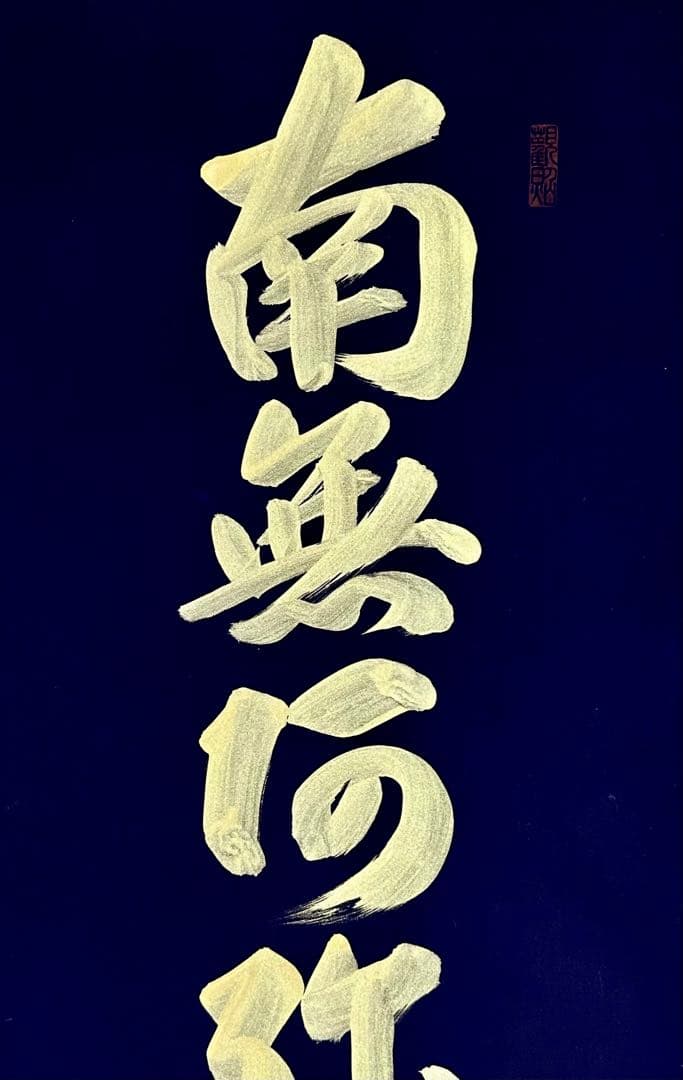 南無阿弥